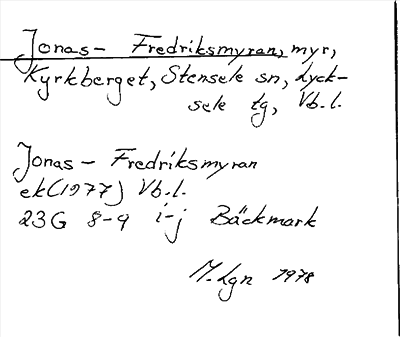 Jonas- Fredriksmyran, myr,
Kyrkberget, Stensele sn, Lyck-
sele tg, Vb.l.
Jonas- Fredriksmyran
ek(1977) Vb.l.
23G 8-9 i-j Bäckmark
M.Lgn 1978